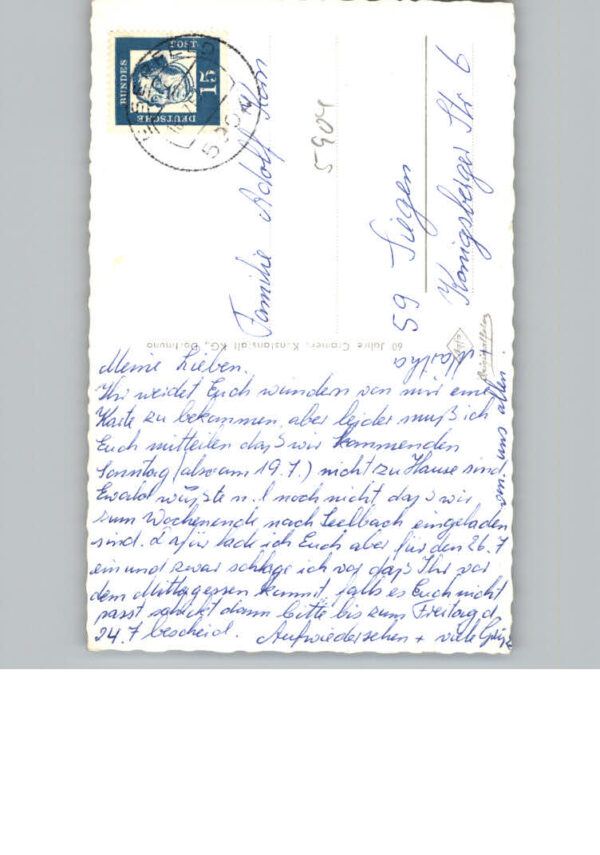 DEUTSCHE
BUNDES
POST
15
Familie Adolf Korn
5904
59 Siegen
Königsberger Str 6
60 Jahre Cramers Kunstanstalt KG., Dortmund
Meine Lieben.
Ihr werdet Euch wundern von mir eine
Karte zu bekommen, aber leider muß ich
Euch mitteilen daß wir kommenden
Sonntag (also am 19.7.) nicht zu Hause sind
Ewald wußte noch nicht daß wir
zum Wochenende nach Seelbach eingeladen
sind. Dafür lade ich Euch aber für den 26.7
ein und zwar schlage ich vor daß Ihr vor
dem Mittagessen kommt, falls es Euch nicht
passt schickt dann bitte bis zum Freitag d.
24.7 bescheid. Aufwiedersehen + viele Grüße
von uns allen